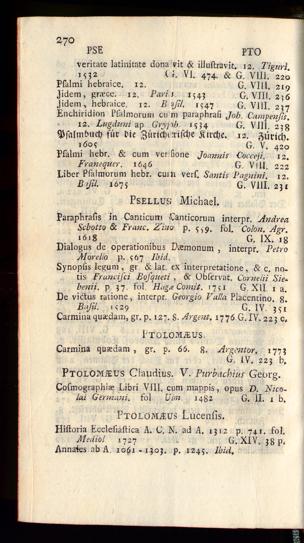 270
PSE PTO
veritate latinitate donavit & illustravit. 12. Tiguri.
1532 G. VI. 474. & G. VIII. 220
Psalmi hebraice. 12. G. VIII. 219
Jidem, græce. 12. Paris 1543 G. VIII. 236
Jidem, hebraice. 12. Basil. 1547 G. VIII. 237
Enchiridion Psalmorum cum paraphrasi Job. Campensis.
12. Lugduni ap Gryph. 1534 G. VIII. 238
Psalmbuch für die Zürcherische Kirche. 12. Zürich.
1605 G. V. 420
Psalmi hebr. & cum versione Joannis Cocceji. 12.
Franequer. 1646 G. VIII. 222
Liber Psalmorum hebr. cum vers. Santis Pagnini. 12.
Basil. 1675 G. VIII. 231
PSELLUS Michael.
Paraphrasis in Canticum Canticorum interpr. Andrea
Schotto & Franc. Zino p. 559. fol. Colon. Agr.
1618 G. IX. 18
Dialogus de operationibus Dæmonum, interpr. Petro
Morello p. 567 Ibid.
Synopsis legum, gr & lat. ex interpretatione, & c. no-
tis Francisci Bosqueti, & Observat. Cornelii Sie-
benii. p 37. fol. Hagæ Comit. 1751 G. XII. 1 a.
De victus ratione, interpr. Georgio Valla Placentino. 8.
Basil. 1529 G. IV. 351
Carmina quædam, gr. p. 127. 8. Argent. 1776 G. IV. 223 c.
PTOLOMÆUS.
Carmina quædam, gr. p. 66. 8. Argentor. 1773
G. IV. 223 b.
PTOLOMÆUS Claudius. V. Purbachius Georg.
Cosmographiæ Libri VIII. cum mappis, opus D. Nico-
lai Germani. fol Ulm 1482 G. II. 1 b.
PTOLOMÆUS Lucensis.
Historia Ecclesiastica A. C. N. ad A. 1312 p. 741. fol.
Mediol 1727 G. XIV. 38 p.
Annales ab A. 1061 - 1303. p. 1245. Ibid.